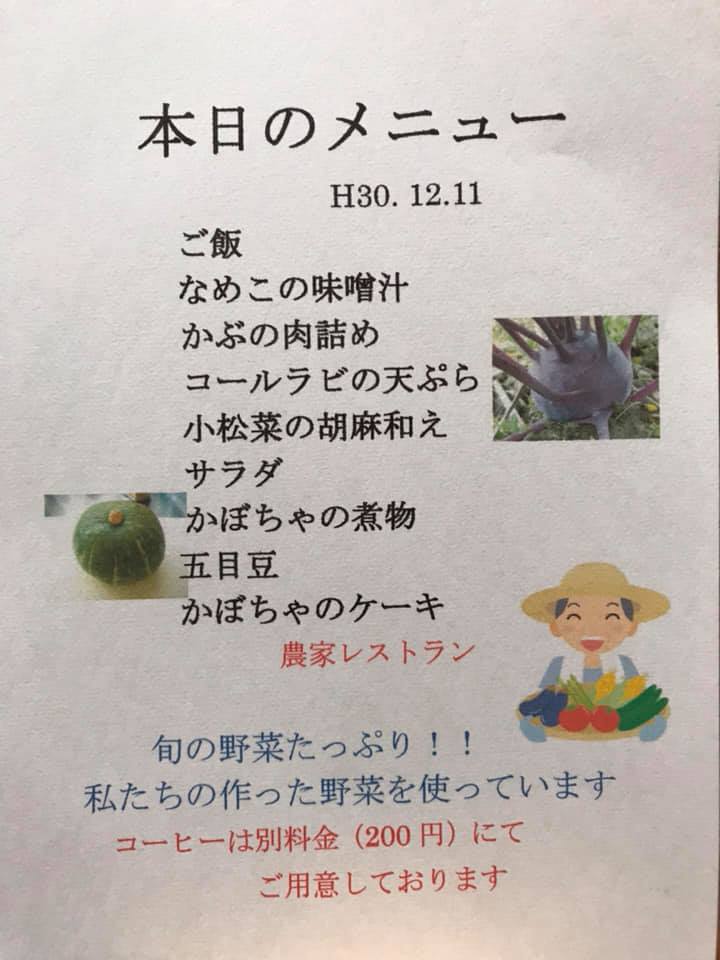 本日のメニュー
H30. 12.11
ご飯
なめこの味噌汁
かぶの肉詰め
コールラビの天ぷら
小松菜の胡麻和え
サラダ
かぼちゃの煮物
五目豆
かぼちゃのケーキ
農家レストラン
旬の野菜たっぷり！！
私たちの作った野菜を使っています
コーヒーは別料金（200 円）にて
ご用意しております